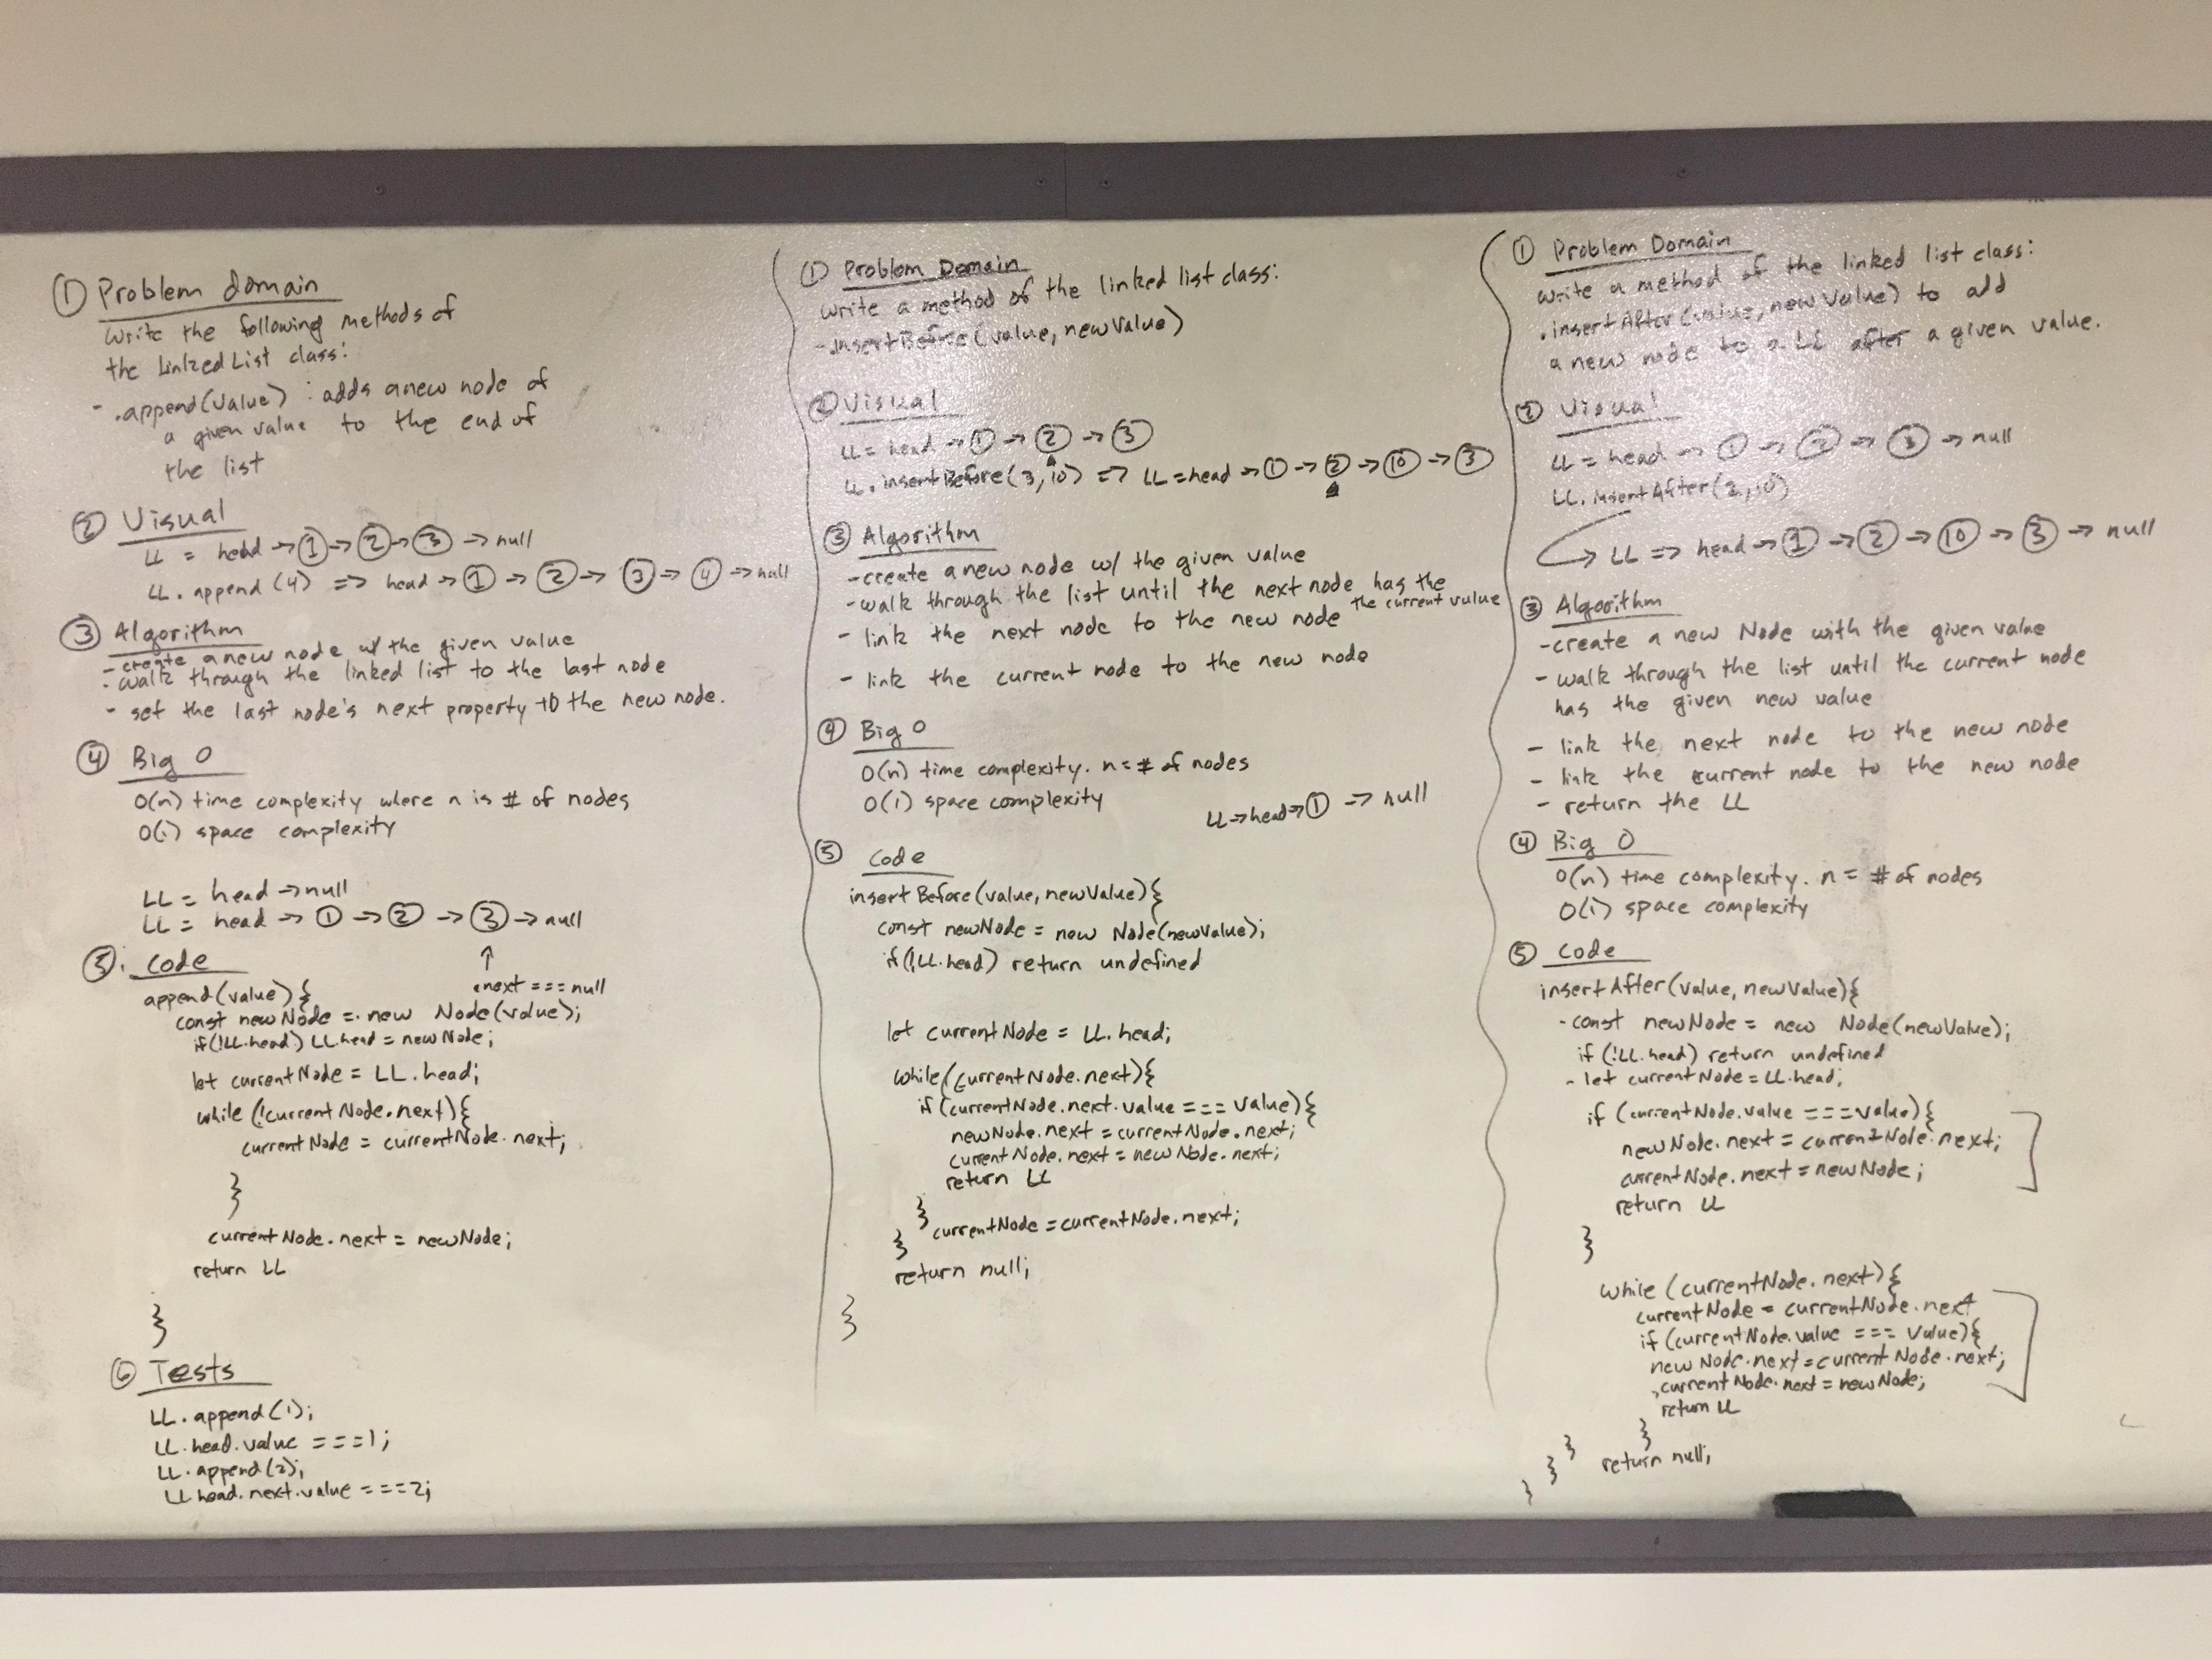 ① Problem domain
Write the following methods of
the Linked List class:
- .append(value) : adds a new node of
a given value to the end of
the list
② Visual
LL = head → ① → ② → ③ → null
LL.append(4) => head → ① → ② → ③ → ④ → null
③ Algorithm
- create a new node w/ the given value
- walk through the linked list to the last node
- set the last node's next property to the new node.
④ Big O
O(n) time complexity where n is # of nodes
O(1) space complexity
LL = head → null
LL = head → ① → ② → ③ → null
↑
.next === null
⑤. Code
append(value){
const newNode = new Node(value);
if(!LL.head) LL.head = newNode;
let currentNode = LL.head;
while(!currentNode.next){
currentNode = currentNode.next;
}
currentNode.next = newNode;
return LL
}
⑥ Tests
LL.append(1);
LL.head.value === 1;
LL.append(2);
LL.head.next.value === 2;
① Problem Domain
write a method of the linked list class:
- .insertBefore(value, newValue)
② Visual
LL = head → ① → ② → ③
LL.insertBefore(3,10) => LL = head → ① → ② → ⑩ → ③
③ Algorithm
- create a new node w/ the given value
- walk through the list until the next node has the
the current value
- link the next node to the new node
- link the current node to the new node
④ Big O
O(n) time complexity. n = # of nodes
O(1) space complexity
LL → head → ① → null
⑤ Code
insertBefore(value, newValue){
const newNode = new Node(newValue);
if(!LL.head) return undefined
let currentNode = LL.head;
while(currentNode.next){
if(currentNode.next.value === value){
newNode.next = currentNode.next;
currentNode.next = newNode.next;
return LL
}
currentNode = currentNode.next;
}
return null;
}
① Problem Domain
write a method of the linked list class:
.insertAfter(value, newValue) to add
a new node to a LL after a given value.
② Visual
LL = head → ① → ② → ③ → null
LL.insertAfter(2,10)
→ LL => head → ① → ② → ⑩ → ③ → null
③ Algorithm
- create a new Node with the given value
- walk through the list until the current node
has the given new value
- link the next node to the new node
- link the current node to the new node
- return the LL
④ Big O
O(n) time complexity. n = # of nodes
O(1) space complexity
⑤ Code
insertAfter(value, newValue){
- const newNode = new Node(newValue);
if(!LL.head) return undefined
- let currentNode = LL.head;
if (currentNode.value === value){
newNode.next = currentNode.next;
currentNode.next = newNode;
return LL
}
while (currentNode.next){
currentNode = currentNode.next
if (currentNode.value === value){
newNode.next = currentNode.next;
currentNode.next = newNode;
return LL
}
} return null;
}
}